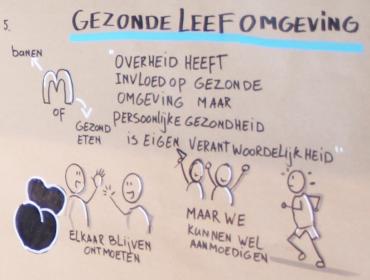 5. GEZONDE LEEFOMGEVING
BANEN
M
OF
GEZOND
ETEN
"OVERHEID HEEFT
INVLOED OP GEZONDE
OMGEVING MAAR
PERSOONLIJKE GEZONDHEID
IS EIGEN VERANTWOORDELIJKHEID"
ELKAAR BLIJVEN
ONTMOETEN
MAAR WE
KUNNEN WEL
AANMOEDIGEN